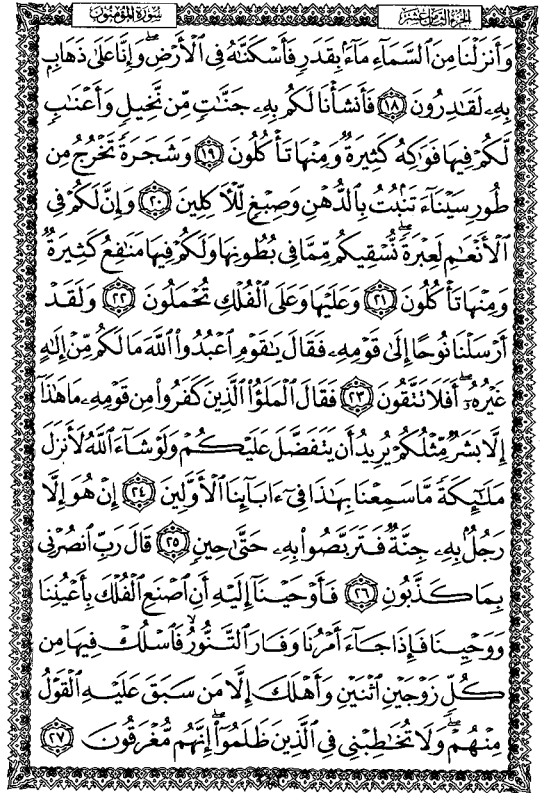 الجزء الثامن عشر
سورة المؤمنون
وَأَنزَلْنَا مِنَ ٱلسَّمَآءِ مَآءًۢ بِقَدَرٍ فَأَسْكَنَّٰهُ فِى ٱلْأَرْضِ ۖ وَإِنَّا عَلَىٰ ذَهَابٍۭ
بِهِۦ لَقَٰدِرُونَ ﴿١٨﴾ فَأَنشَأْنَا لَكُم بِهِۦ جَنَّٰتٍ مِّن نَّخِيلٍ وَأَعْنَٰبٍ
لَّكُمْ فِيهَا فَوَٰكِهُ كَثِيرَةٌ وَمِنْهَا تَأْكُلُونَ ﴿١٩﴾ وَشَجَرَةً تَخْرُجُ مِن
طُورِ سَيْنَآءَ تَنۢبُتُ بِٱلدُّهْنِ وَصِبْغٍ لِّلْءَاكِلِينَ ﴿٢٠﴾ وَإِنَّ لَكُمْ فِى
ٱلْأَنْعَٰمِ لَعِبْرَةً ۖ نُّسْقِيكُم مِّمَّا فِى بُطُونِهَا وَلَكُمْ فِيهَا مَنَٰفِعُ كَثِيرَةٌ
وَمِنْهَا تَأْكُلُونَ ﴿٢١﴾ وَعَلَيْهَا وَعَلَى ٱلْفُلْكِ تُحْمَلُونَ ﴿٢٢﴾ وَلَقَدْ
أَرْسَلْنَا نُوحًا إِلَىٰ قَوْمِهِۦ فَقَالَ يَٰقَوْمِ ٱعْبُدُوا۟ ٱللَّهَ مَا لَكُم مِّنْ إِلَٰهٍ
غَيْرُهُۥٓ ۖ أَفَلَا تَتَّقُونَ ﴿٢٣﴾ فَقَالَ ٱلْمَلَؤُا۟ ٱلَّذِينَ كَفَرُوا۟ مِن قَوْمِهِۦ مَا هَٰذَآ
إِلَّا بَشَرٌ مِّثْلُكُمْ يُرِيدُ أَن يَتَفَضَّلَ عَلَيْكُمْ وَلَوْ شَآءَ ٱللَّهُ لَأَنزَلَ
مَلَٰٓئِكَةً مَّا سَمِعْنَا بِهَٰذَا فِىٓ ءَابَآئِنَا ٱلْأَوَّلِينَ ﴿٢٤﴾ إِنْ هُوَ إِلَّا
رَجُلٌۢ بِهِۦ جِنَّةٌ فَتَرَبَّصُوا۟ بِهِۦ حَتَّىٰ حِينٍ ﴿٢٥﴾ قَالَ رَبِّ ٱنصُرْنِى
بِمَا كَذَّبُونِ ﴿٢٦﴾ فَأَوْحَيْنَآ إِلَيْهِ أَنِ ٱصْنَعِ ٱلْفُلْكَ بِأَعْيُنِنَا
وَوَحْيِنَا فَإِذَا جَآءَ أَمْرُنَا وَفَارَ ٱلتَّنُّورُ ۙ فَٱسْلُكْ فِيهَا مِن
كُلٍّ زَوْجَيْنِ ٱثْنَيْنِ وَأَهْلَكَ إِلَّا مَن سَبَقَ عَلَيْهِ ٱلْقَوْلُ
مِنْهُمْ ۖ وَلَا تُخَٰطِبْنِى فِى ٱلَّذِينَ ظَلَمُوٓا۟ ۖ إِنَّهُم مُّغْرَقُونَ ﴿٢٧﴾